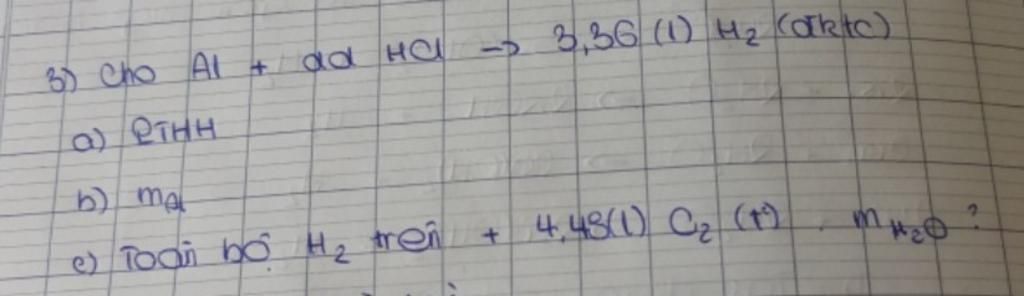 3) Cho Al + dd HCl → 3,36 (l) H₂ (đktc)
a) PTHH
b) mAl
c) Toàn bộ H₂ trên + 4,48(l) O₂ (t°). mH₂O ?